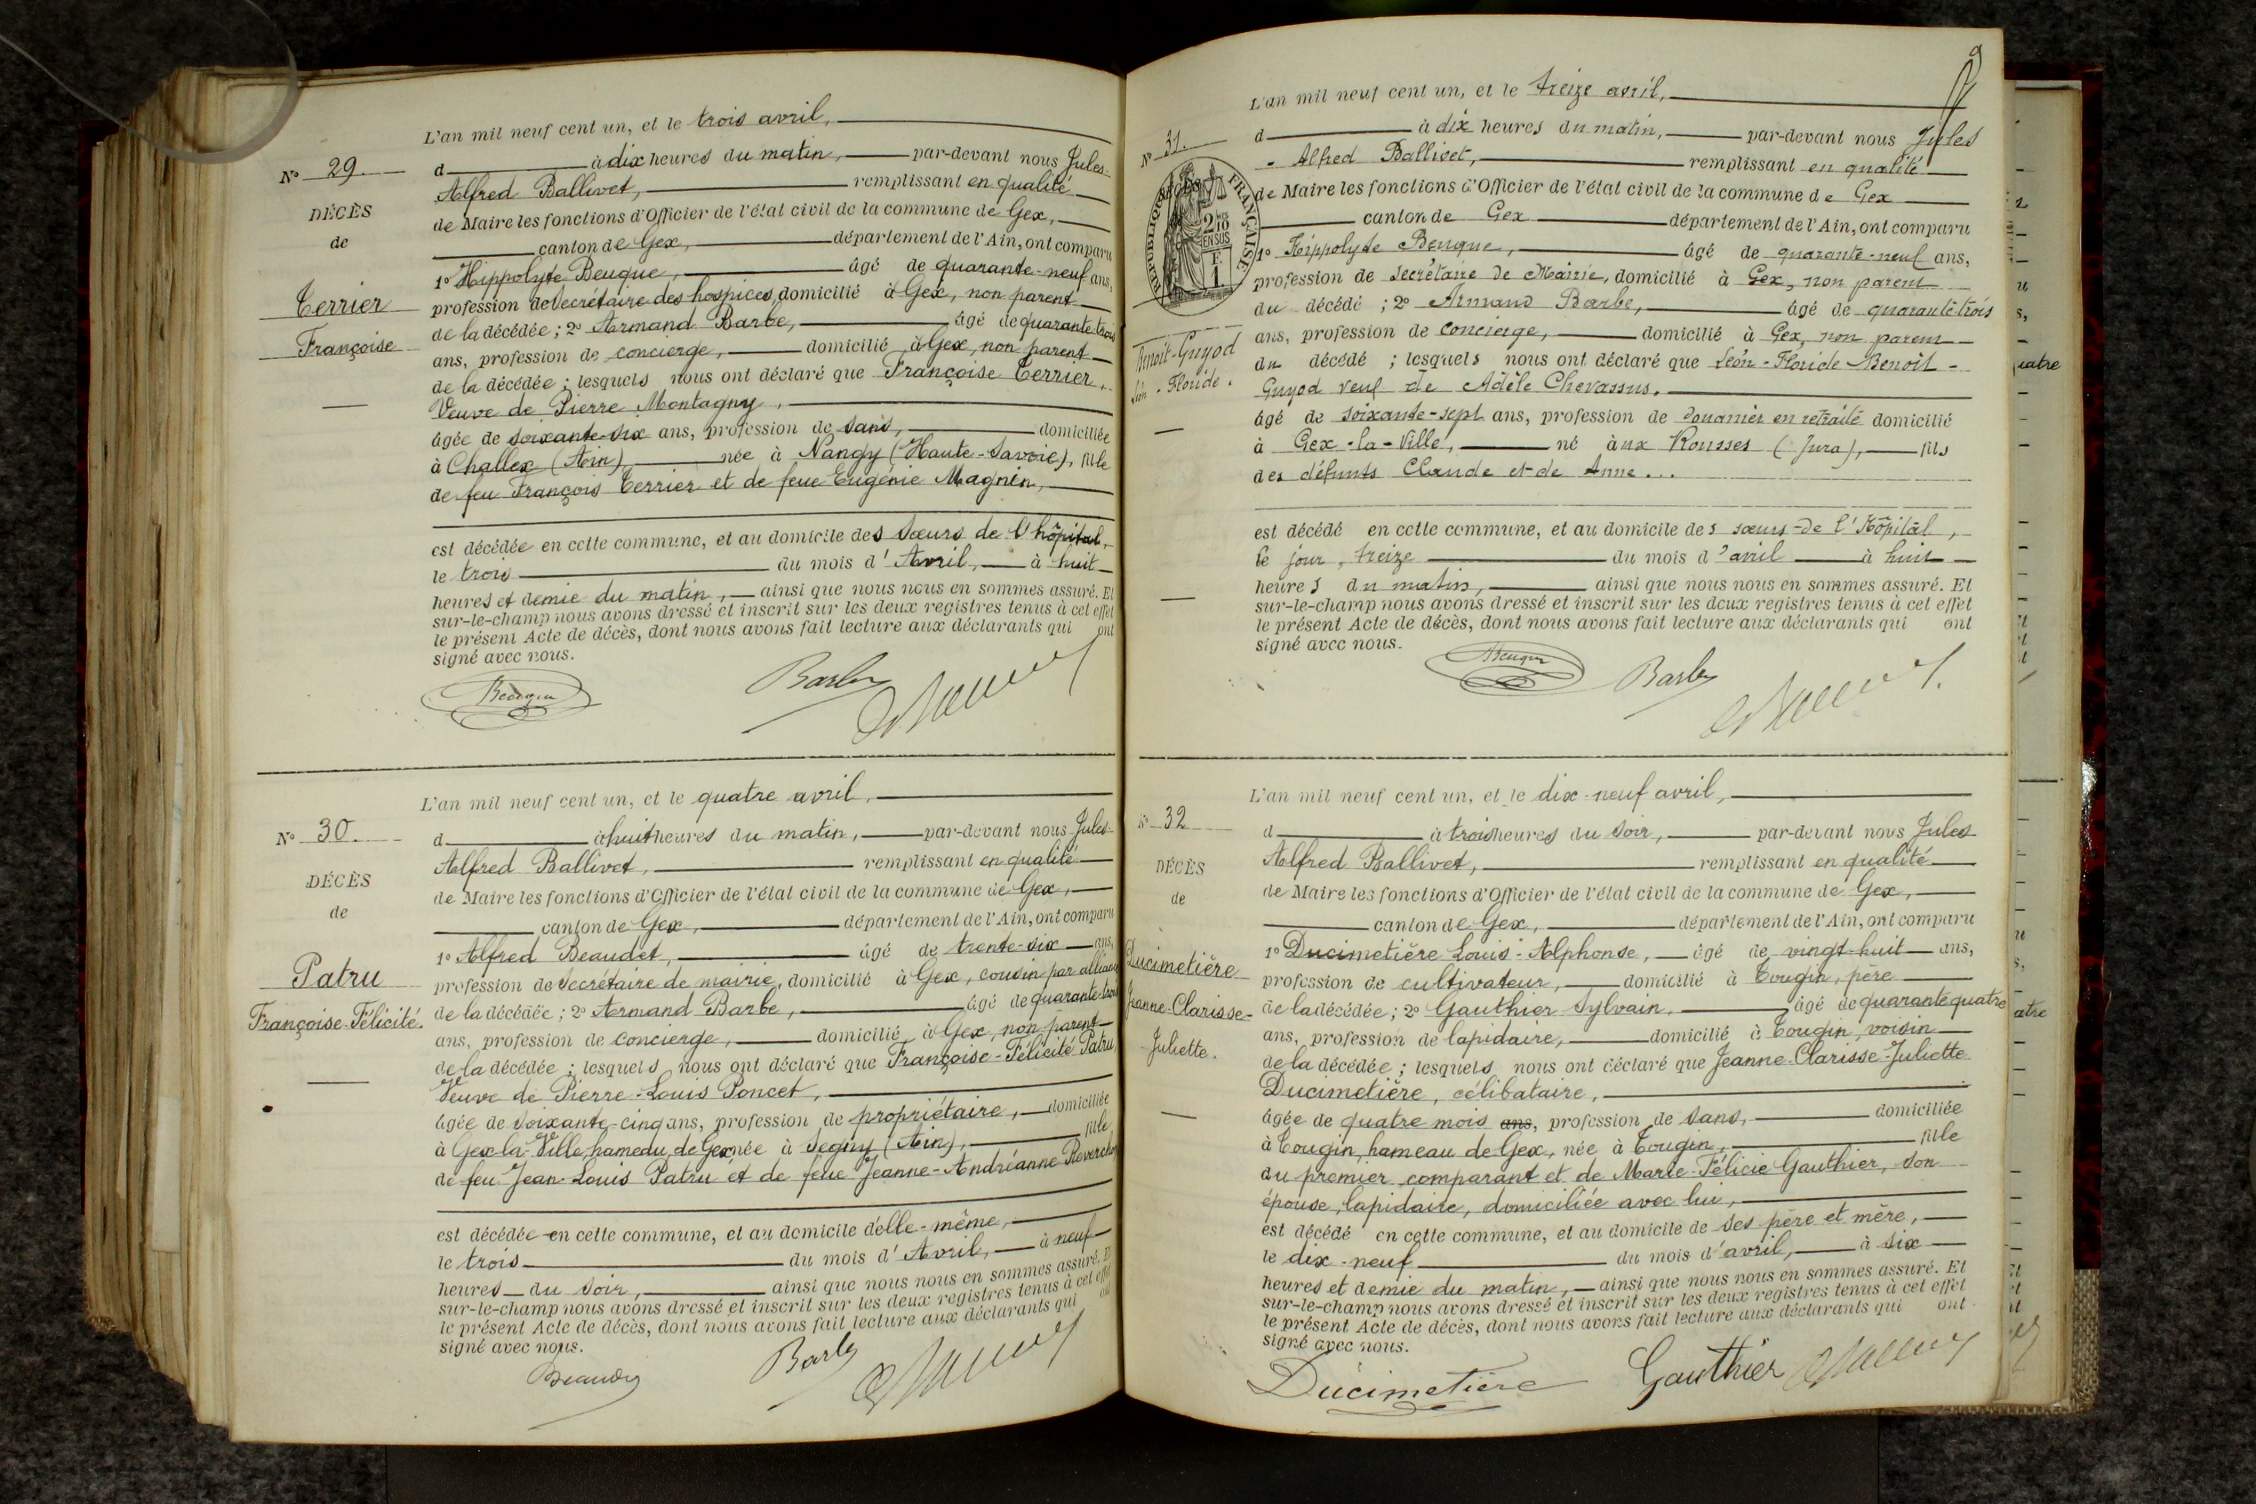 L'an mil neuf cent un, et le trois avril,
No 29
d à dix heures du matin, par-devant nous Jules-
Alfred Ballivet, remplissant en qualité
DÉCÈS
de Maire les fonctions d'Officier de l'état civil de la commune de Gex,
de
canton de Gex, département de l'Ain, ont comparu
1o Hippolyte Beuque, âgé de quarante-neuf ans,
Terrier
profession de Secrétaire des hospices, domicilié à Gex, non parent
de la décédée ; 2o Armand Barbe, âgé de quarante-trois
Françoise
ans, profession de concierge, domicilié à Gex, non parent
de la décédée ; lesquels nous ont déclaré que Françoise Terrier,
Veuve de Pierre Montagny,
âgée de soixante-six ans, profession de sans, domiciliée
à Challex (Ain) née à Nangy (Haute-Savoie), fille
de feu François Terrier et de feue Eugénie Magnin,
est décédée en cette commune, et au domicile des Sœurs de l'hôpital,
le trois du mois d'Avril, à huit
heures et demie du matin, ainsi que nous nous en sommes assuré. Et
sur-le-champ nous avons dressé et inscrit sur les deux registres tenus à cet effet
le présent Acte de décès, dont nous avons fait lecture aux déclarants qui ont
signé avec nous.
Beuque Barbe
L'an mil neuf cent un, et le quatre avril,
No 30.
d à huit heures du matin, par-devant nous Jules-
Alfred Ballivet, remplissant en qualité
DÉCÈS
de Maire les fonctions d'Officier de l'état civil de la commune de Gex,
de
canton de Gex, département de l'Ain, ont comparu
1o Alfred Beaudet, âgé de trente-six ans,
Patru
profession de Secrétaire de mairie, domicilié à Gex, cousin par alliance
de la décédée ; 2o Armand Barbe, âgé de quarante-trois
Françoise-Félicité.
ans, profession de concierge, domicilié à Gex, non parent
de la décédée ; lesquels nous ont déclaré que Françoise-Félicité Patru
Veuve de Pierre-Louis Poncet,
âgée de soixante-cinq ans, profession de propriétaire, domiciliée
à Gex-la-Ville, hameau de Gex née à Segny (Ain), fille
de feu Jean-Louis Patru et de feue Jeanne-Andréanne Reverchon
est décédée en cette commune, et au domicile d'elle-même,
le trois du mois d'Avril, à neuf
heures du soir, ainsi que nous nous en sommes assuré. Et
sur-le-champ nous avons dressé et inscrit sur les deux registres tenus à cet effet
le présent Acte de décès, dont nous avons fait lecture aux déclarants qui ont
signé avec nous.
Beaudet Barbe
L'an mil neuf cent un, et le treize avril,
No 31.
d à dix heures du matin, par-devant nous Jules
- Alfred Ballivet, remplissant en qualité
RÉPUBLIQUE FRANÇAISE
2/10 EN SUS
F. 1
de Maire les fonctions d'Officier de l'état civil de la commune de Gex
canton de Gex département de l'Ain, ont comparu
1o Hippolyte Beuque, âgé de quarante-neuf ans,
profession de secrétaire de Mairie, domicilié à Gex, non parent
du décédé ; 2o Armand Barbe, âgé de quarante-trois
Benoit-Guyod
ans, profession de concierge, domicilié à Gex, non parent
Léon-Floride.
du décédé ; lesquels nous ont déclaré que Léon-Floride Benoit-
Guyod veuf de Adèle Chevassus.
âgé de soixante-sept ans, profession de douanier en retraite domicilié
à Gex-la-Ville, né aux Rousses (Jura), fils
des défunts Claude et de Anne...
est décédé en cette commune, et au domicile des sœurs de l'Hôpital,
le jour, treize du mois d'avril à huit
heures du matin, ainsi que nous nous en sommes assuré. Et
sur-le-champ nous avons dressé et inscrit sur les deux registres tenus à cet effet
le présent Acte de décès, dont nous avons fait lecture aux déclarants qui ont
signé avec nous.
Beuque Barbe
L'an mil neuf cent un, et le dix-neuf avril,
No 32
d à trois heures du soir, par-devant nous Jules
Alfred Ballivet, remplissant en qualité
DÉCÈS
de Maire les fonctions d'Officier de l'état civil de la commune de Gex,
de
canton de Gex, département de l'Ain, ont comparu
1o Ducimetière Louis-Alphonse, âgé de vingt-huit ans,
Ducimetière
profession de cultivateur, domicilié à Tougin, père
Jeanne-Clarisse-
de la décédée ; 2o Gauthier Sylvain, âgé de quarante quatre
Juliette.
ans, profession de lapidaire, domicilié à Tougin, voisin
de la décédée ; lesquels nous ont déclaré que Jeanne-Clarisse-Juliette
Ducimetière, célibataire,
âgée de quatre mois ans, profession de sans, domiciliée
à Tougin, hameau de Gex, née à Tougin, fille
du premier comparant et de Marie-Félicie Gauthier, son
épouse, lapidaire, domiciliée avec lui,
est décédé en cette commune, et au domicile de ses père et mère,
le dix-neuf du mois d'avril, à six
heures et demie du matin, ainsi que nous nous en sommes assuré. Et
sur-le-champ nous avons dressé et inscrit sur les deux registres tenus à cet effet
le présent Acte de décès, dont nous avons fait lecture aux déclarants qui ont
signé avec nous.
Ducimetière Gauthier